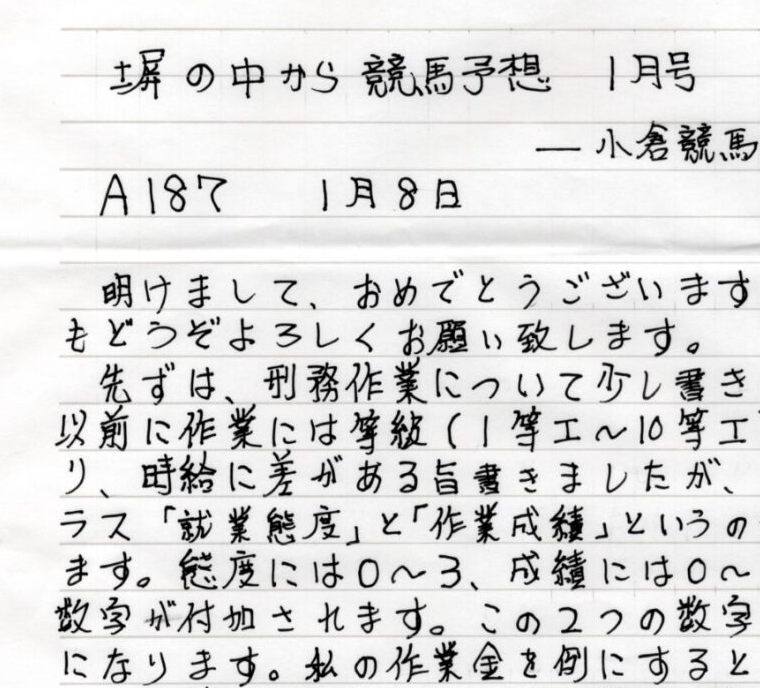 塀の中から 競馬予想 1月号
― 小倉競馬
A187 1月8日
明けまして、おめでとうございます
もどうぞよろしくお願い致します。
先ずは、刑務作業について少し書き
以前に作業には等級(1等工~10等工
り、時給に差がある旨書きましたが、
ラス「就業態度」と「作業成績」というの
ます。態度には0~3、成績には0~
数字が付加されます。この2つの数字
になります。私の作業金を例にすると